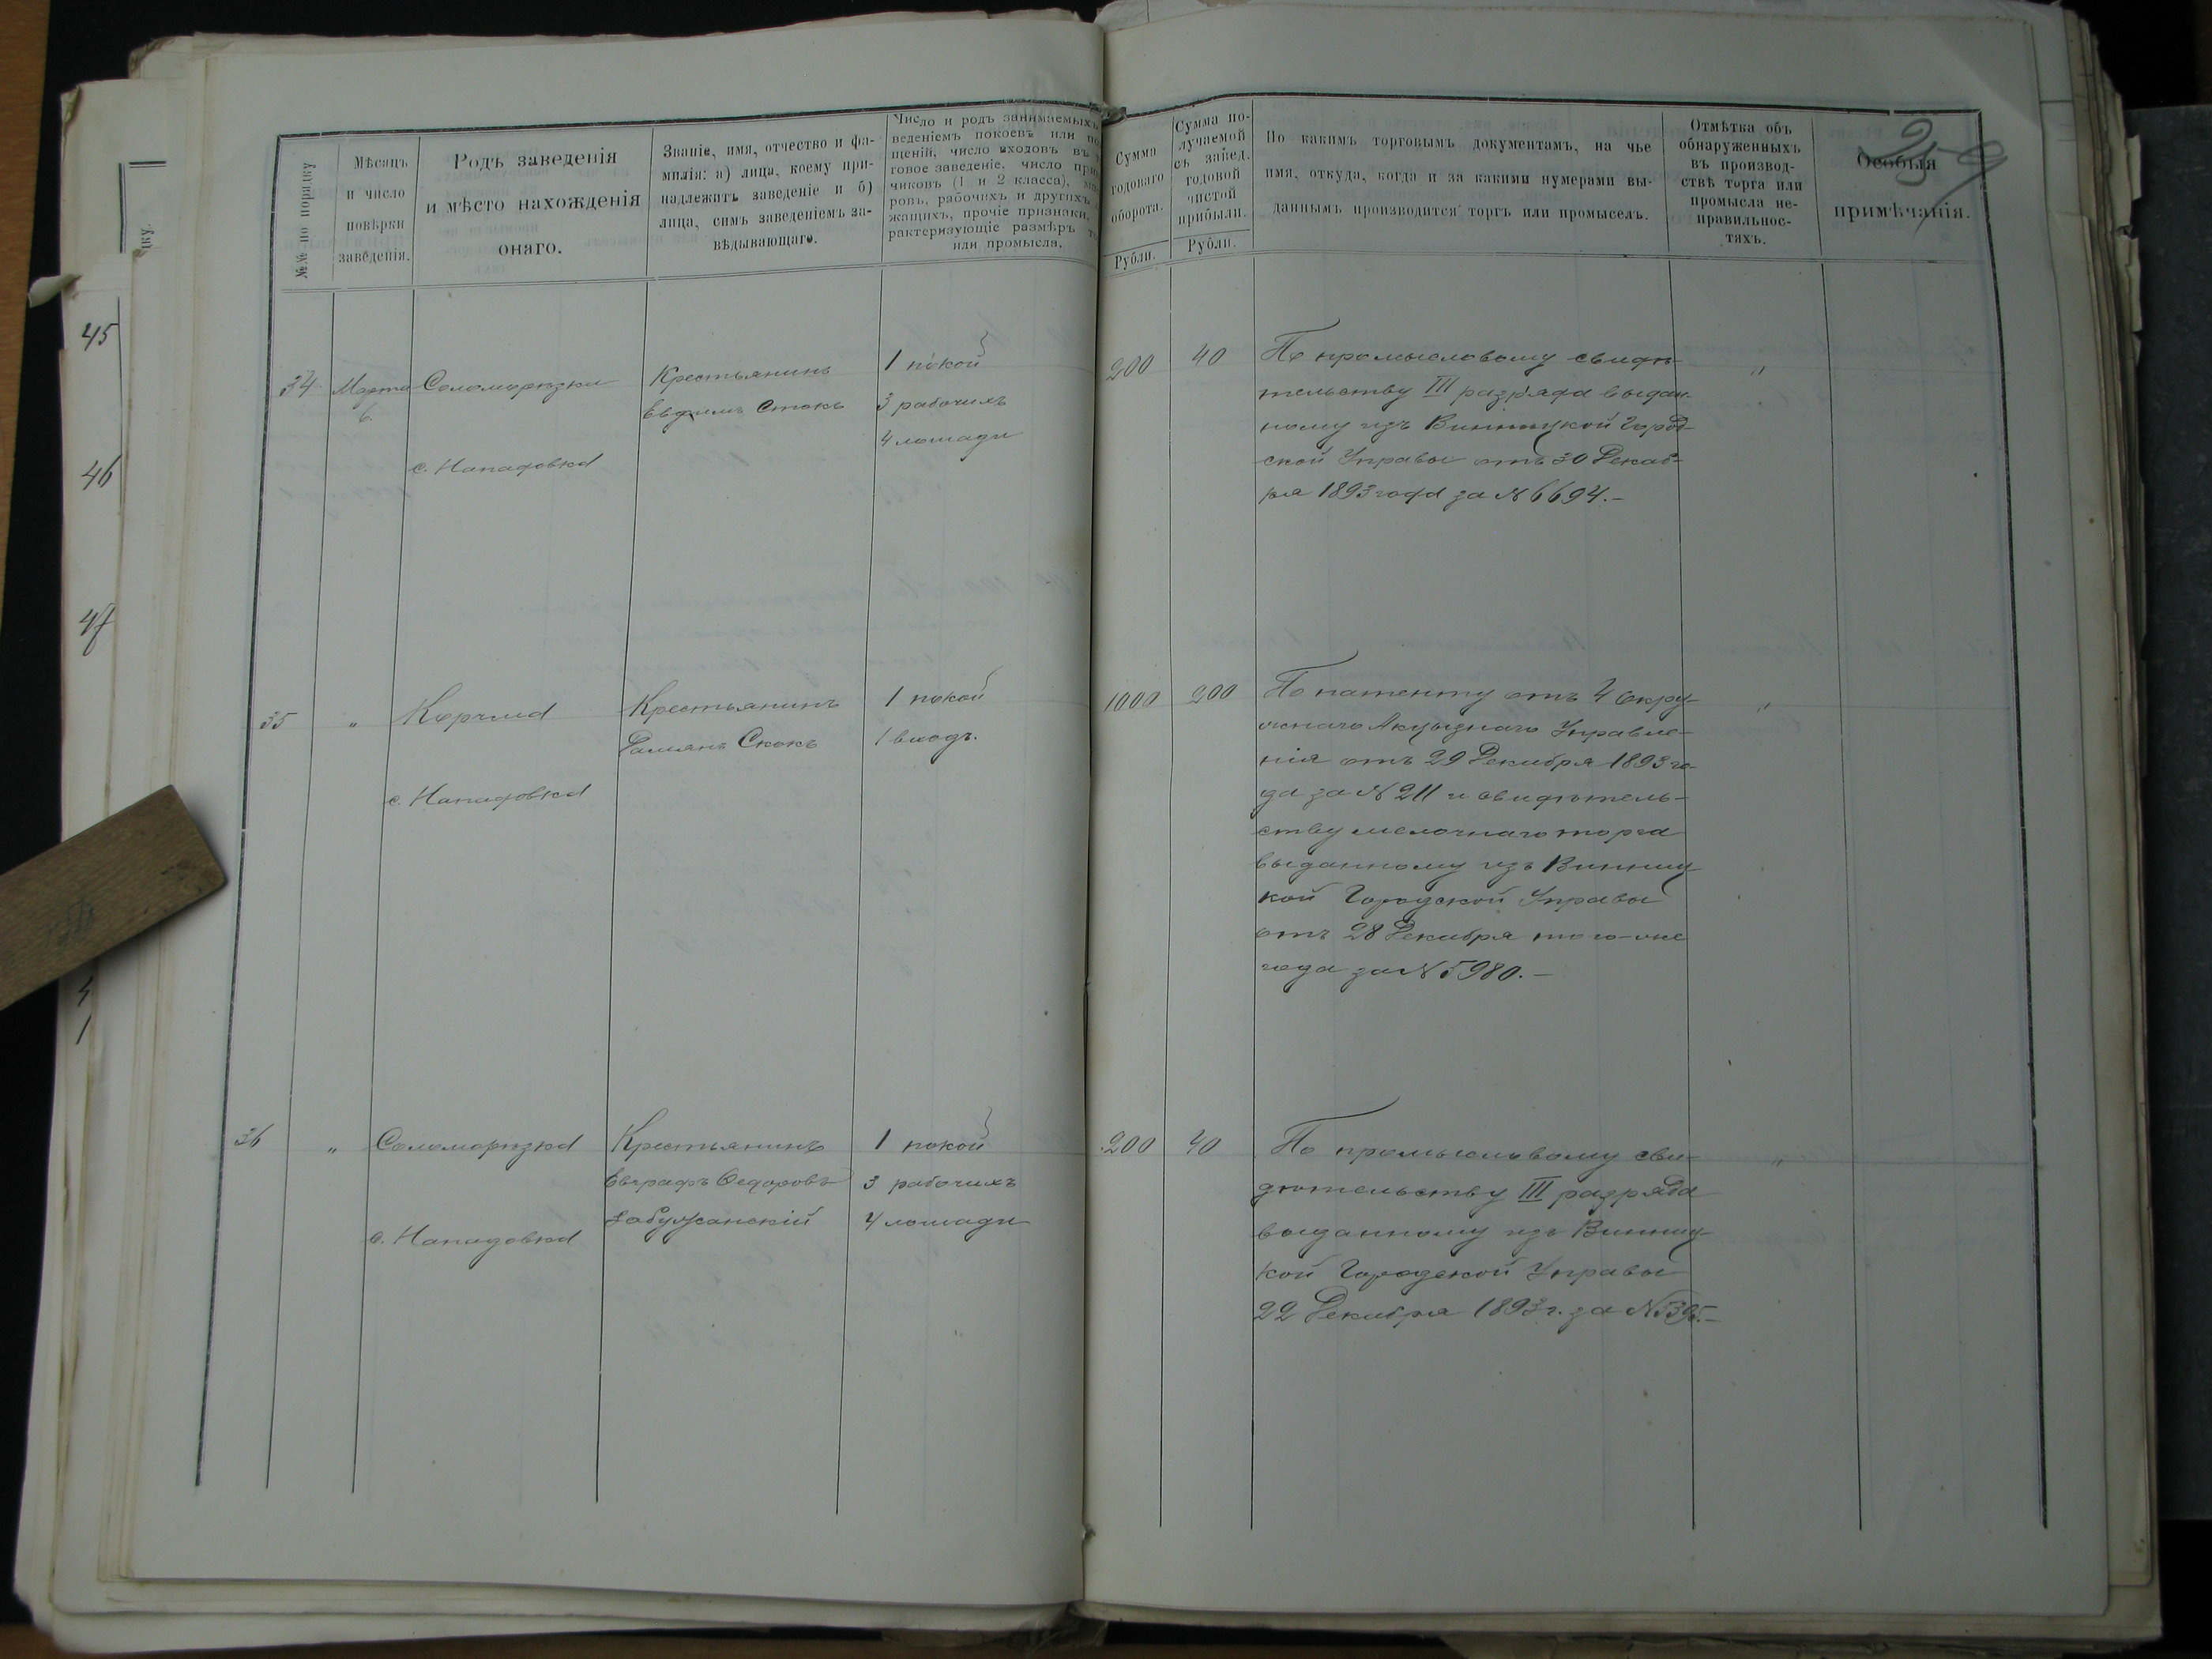 №№ по порядку
Мѣсяцъ
и число
повѣрки
заведенія.
Родъ заведенія
и мѣсто нахожденія
онаго.
Званіе, имя, отчество и фа-
милія: а) лица, коему при-
надлежитъ заведеніе и б)
лица, симъ заведеніемъ за-
вѣдывающаго.
Число и родъ занимаемыхъ
веденіемъ покоевъ или по
щеній, число входовъ въ
говое заведеніе, число при
чиковъ (1 и 2 класса),
ровъ, рабочихъ и другихъ
жащихъ, прочіе признаки,
рактеризующіе размѣръ т
или промысла.
Сумма
годоваго
оборота.
Рубли.
Сумма по-
лучаемой
съ завед.
годовой
чистой
прибыли.
Рубли.
По какимъ торговымъ документамъ, на чье
имя, откуда, когда и за какими нумерами вы-
даннымъ производится торгъ или промыселъ.
Отмѣтка объ
обнаруженныхъ
въ производ-
ствѣ торга или
промысла не-
правильнос-
тяхъ.
Особыя
примѣчанія.
45
46
47
34
Марта
6.
Соломорѣзка
с. Нападовка
Крестьянинъ
Евфимъ Стокъ
1 покой
3 рабочихъ
4 лошади
200
40
По промысловому свидѣ-
тельству III разряда выдан-
ному изъ Винницкой Город-
ской Управы отъ 30 Декаб-
ря 1893 года за № 6694.-
"
35
"
Корчма
с. Нападовка
Крестьянинъ
Даміянъ Скокъ
1 покой
1 входъ.
1000
200
По патенту отъ 4 Окру-
жнаго Акцызнаго Управле-
нія отъ 29 Декабря 1893 го-
да за № 211 и свидѣтель-
ству мелочнаго торга
выданному изъ Винниц-
кой Городской Управы
отъ 28 Декабря того-же
года за № 5980.-
"
36
"
Соломорѣзка
с. Нападовка
Крестьянинъ
Евграфъ Федоровъ
Забужанскій
1 покой
3 рабочихъ
4 лошади
200
40
По промысловому сви-
дѣтельству III разряда
выданному изъ Винниц-
кой Городской Управы
22 Декабря 1893 г. за № 5395.-
"